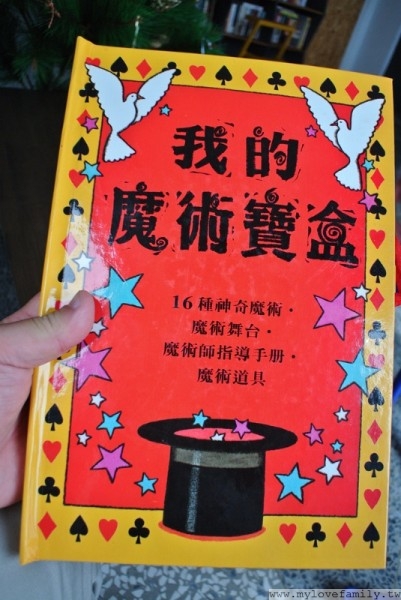 我的
魔術寶盒
16種神奇魔術·
魔術舞台·
魔術師指導手册·
魔術道具
www.mylovefamily.tw